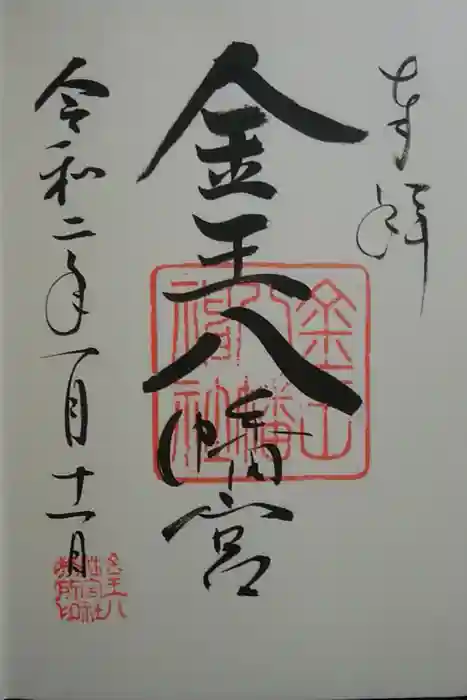 奉拝
金王八幡宮
令和二年一月十一日
金王
八幡
神社
金王八